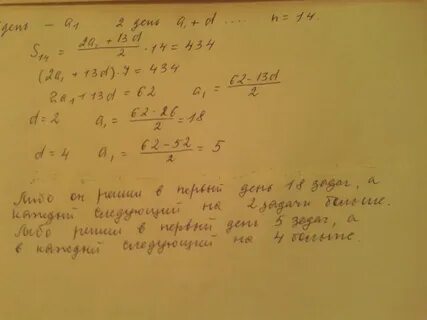 день – a₁ 2 день a₁ + d .... n = 14.
S₁₄ = (2a₁ + 13d)/2 · 14 = 434
(2a₁ + 13d) · 7 = 434
2a₁ + 13d = 62 a₁ = (62 - 13d)/2
d = 2 a₁ = (62 - 26)/2 = 18
d = 4 a₁ = (62 - 52)/2 = 5
Либо он решил в первый день 18 задач, а
каждый следующий на 2 задачи больше.
Либо решил в первый день 5 задач, а
в каждый следующий на 4 больше.